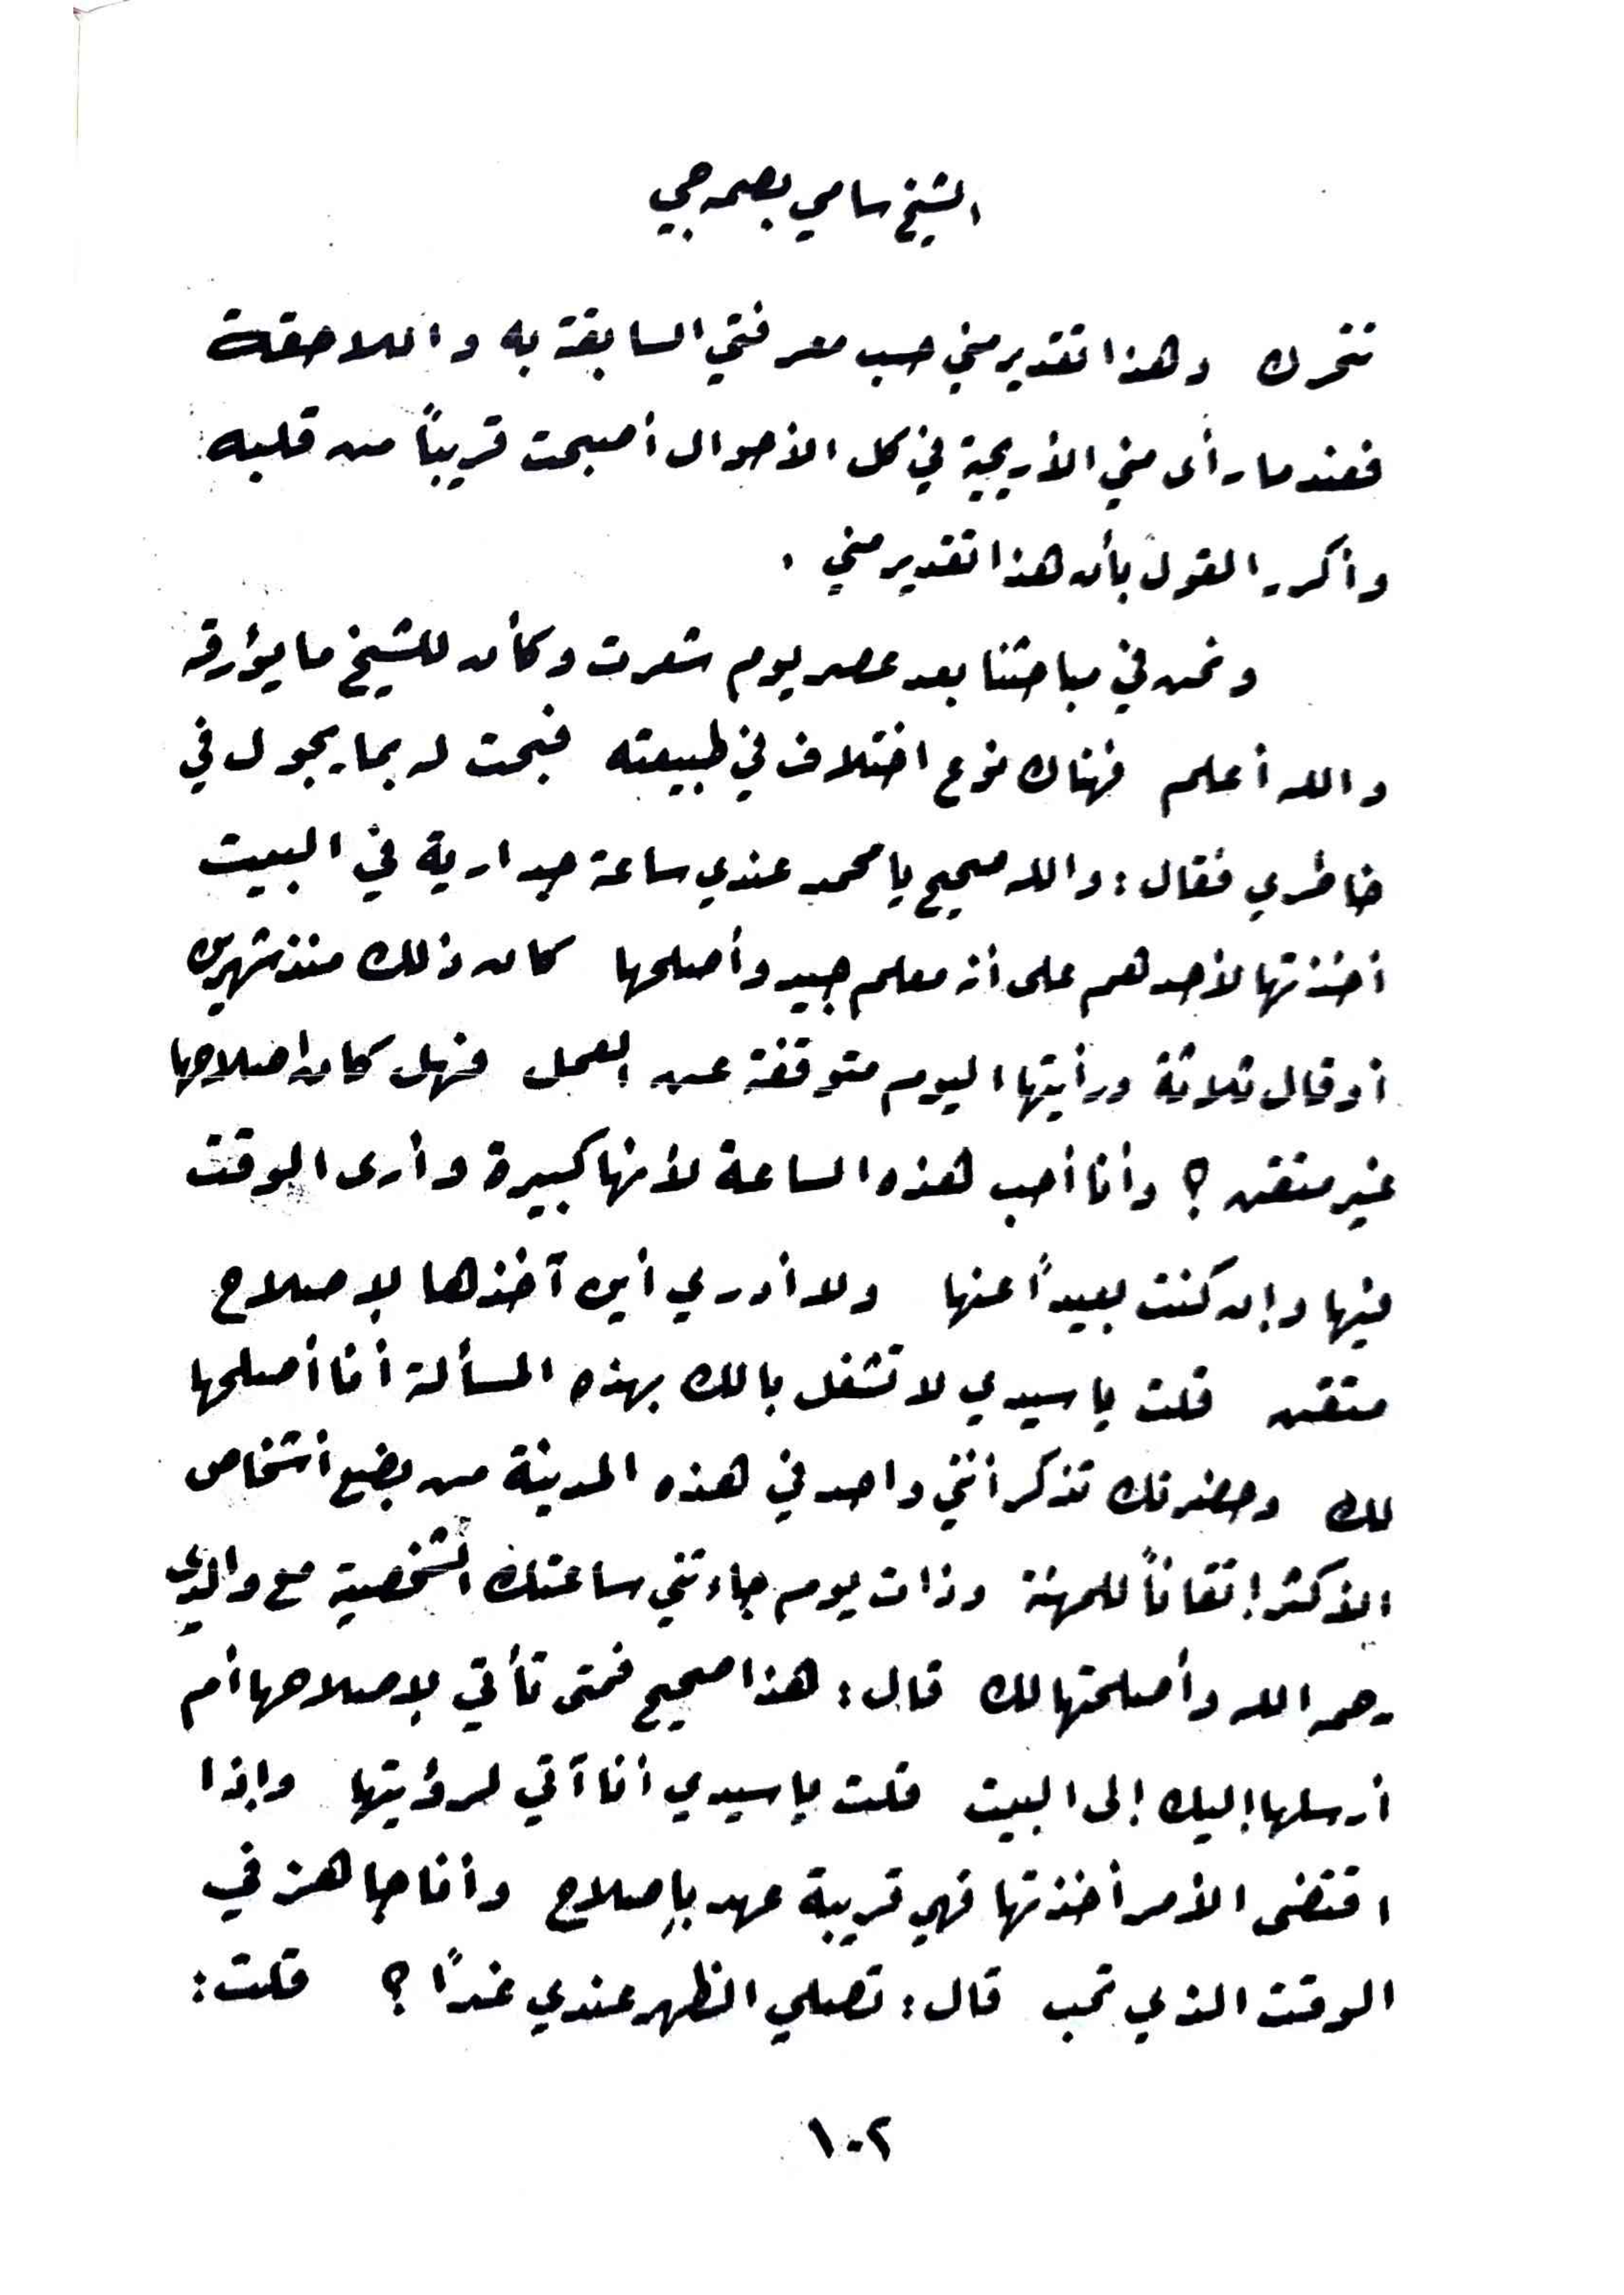 الشيخ سامي بصمه جي
تتحرك وهذا تقدير مني حسب معرفتي السابقة به واللاحقة
فعندما رأى مني الأريحية في كل الأحوال أصبحت قريباً من قلبه
وأكرر القول بأن هذا تقدير مني .
ونحن في مباحثنا بعد عصر يوم شعرت وكأن للشيخ ما يؤرقه
والله أعلم فهناك نوع اختلاف في طبيعته فبحت له بما يجول في
خاطري فقال : والله صحيح يا محمد عندي ساعة جدارية في البيت
أخذتها لأحدهم على أنه معلم جيد وأصلحها كان ذلك منذ شهرين
أو قال ثلاثة ورأيتها اليوم متوقفة عن العمل فهل كان اصلاحها
غير متقن ؟ وأنا أحب هذه الساعة لأنها كبيرة وأرى الوقت
فيها وإن كنت بعيداً عنها ولا أدري أين آخذها لإصلاح
متقن قلت يا سيدي لا تشغل بالك بهذه المسألة أنا أصلحها
لك وحضرتك تذكر أنني واحد في هذه المدينة من بضع أشخاص
الأكثر إتقاناً للمهنة وذات يوم جاءتني ساعتك الشخصية مع والدي
رحمه الله وأصلحتها لك قال : هذا صحيح فمتى تأتي لإصلاحها أم
أرسلها إليك إلى البيت قلت يا سيدي أنا آتي لرؤيتها وإذا
اقتضى الأمر أخذتها فهي قريبة عهد بإصلاح وأنا جاهز في
الوقت الذي تحب قال : تصلي الظهر عندي غداً ؟ قلت :
١٠٢